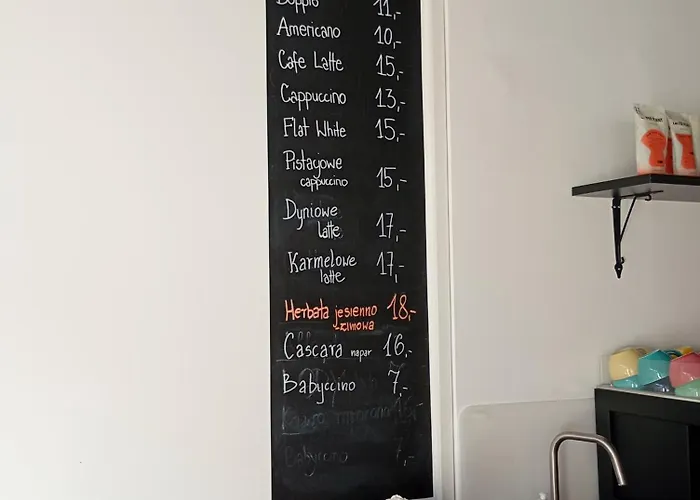 Doppio 11,-
Americano 10,-
Cafe Latte 15,-
Cappuccino 13,-
Flat White 15,-
Pistacjowe
cappuccino 15,-
Dyniowe
latte 17,-
Karmelowe
latte 17,-
Herbata jesienno 18,-
zimowa
Cascara napar 16,-
Babyccino 7,-
Babyccino 7,-